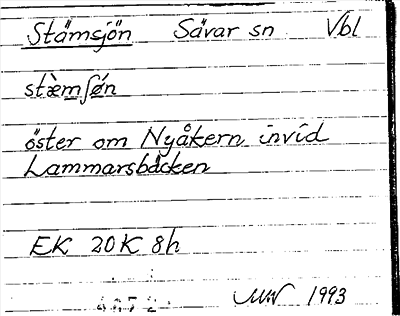 Stämsjön Sävar sn Vbl
stæ̀mʃǿn
öster om Nyåkern invid
Lammarsbäcken
EK 20K 8h
1993